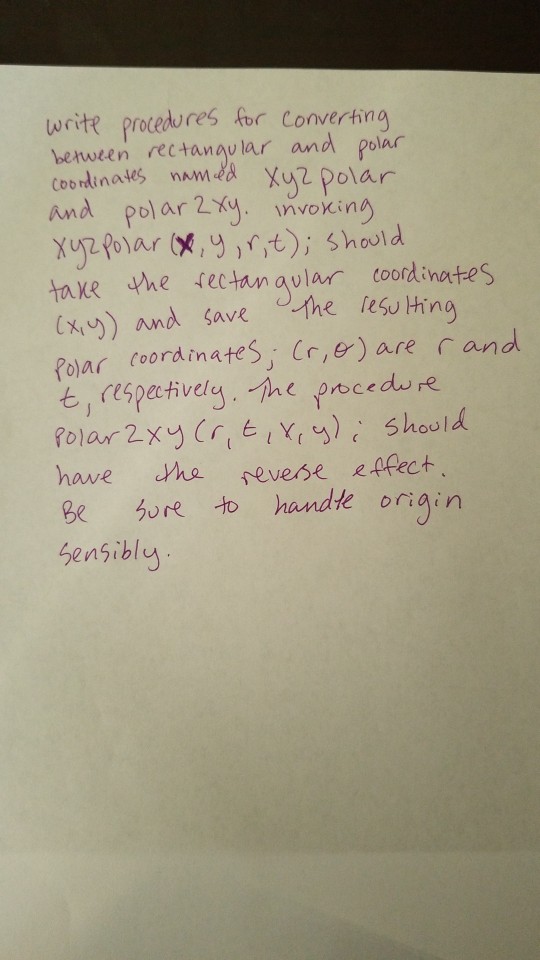 write procedures for converting
between rectangular and polar
coordinates named xy2polar
and polar2xy. invoking
xy2polar (x, y, r, t); should
take the rectangular coordinates
(x,y) and save the resulting
polar coordinates; (r, θ) are r and
t, respectively. The procedure
polar2xy (r, t, x, y); should
have the reverse effect.
Be sure to handle origin
sensibly.